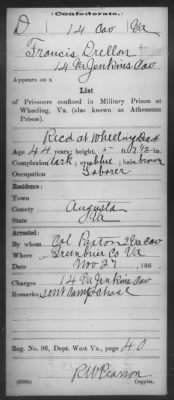 (Confederate.)
D 14 Cav Va
Francis Drellon
14 Va Jenkins Cav
Appears on a
List
of Prisoners confined in Military Prison at
Wheeling, Va. (also known as Atheneum
Prison).
Recd at Wheeling Dec
Age 44 years; height 5 ft 7½ in.
Complexion dark; eyes blue; hair brown
Occupation Laborer
Residence:
Town
County Augusta
State Va
Arrested:
By whom Col Paxton 2 Va Cav
Where Greenbrier Co Va
Date Nov 27, 186
Charges 14 Va Jenkins Cav
Remarks: sent Camp Chase
Reg. No. 96, Dept. West Va., page 40
R W Pearson
Copyist.